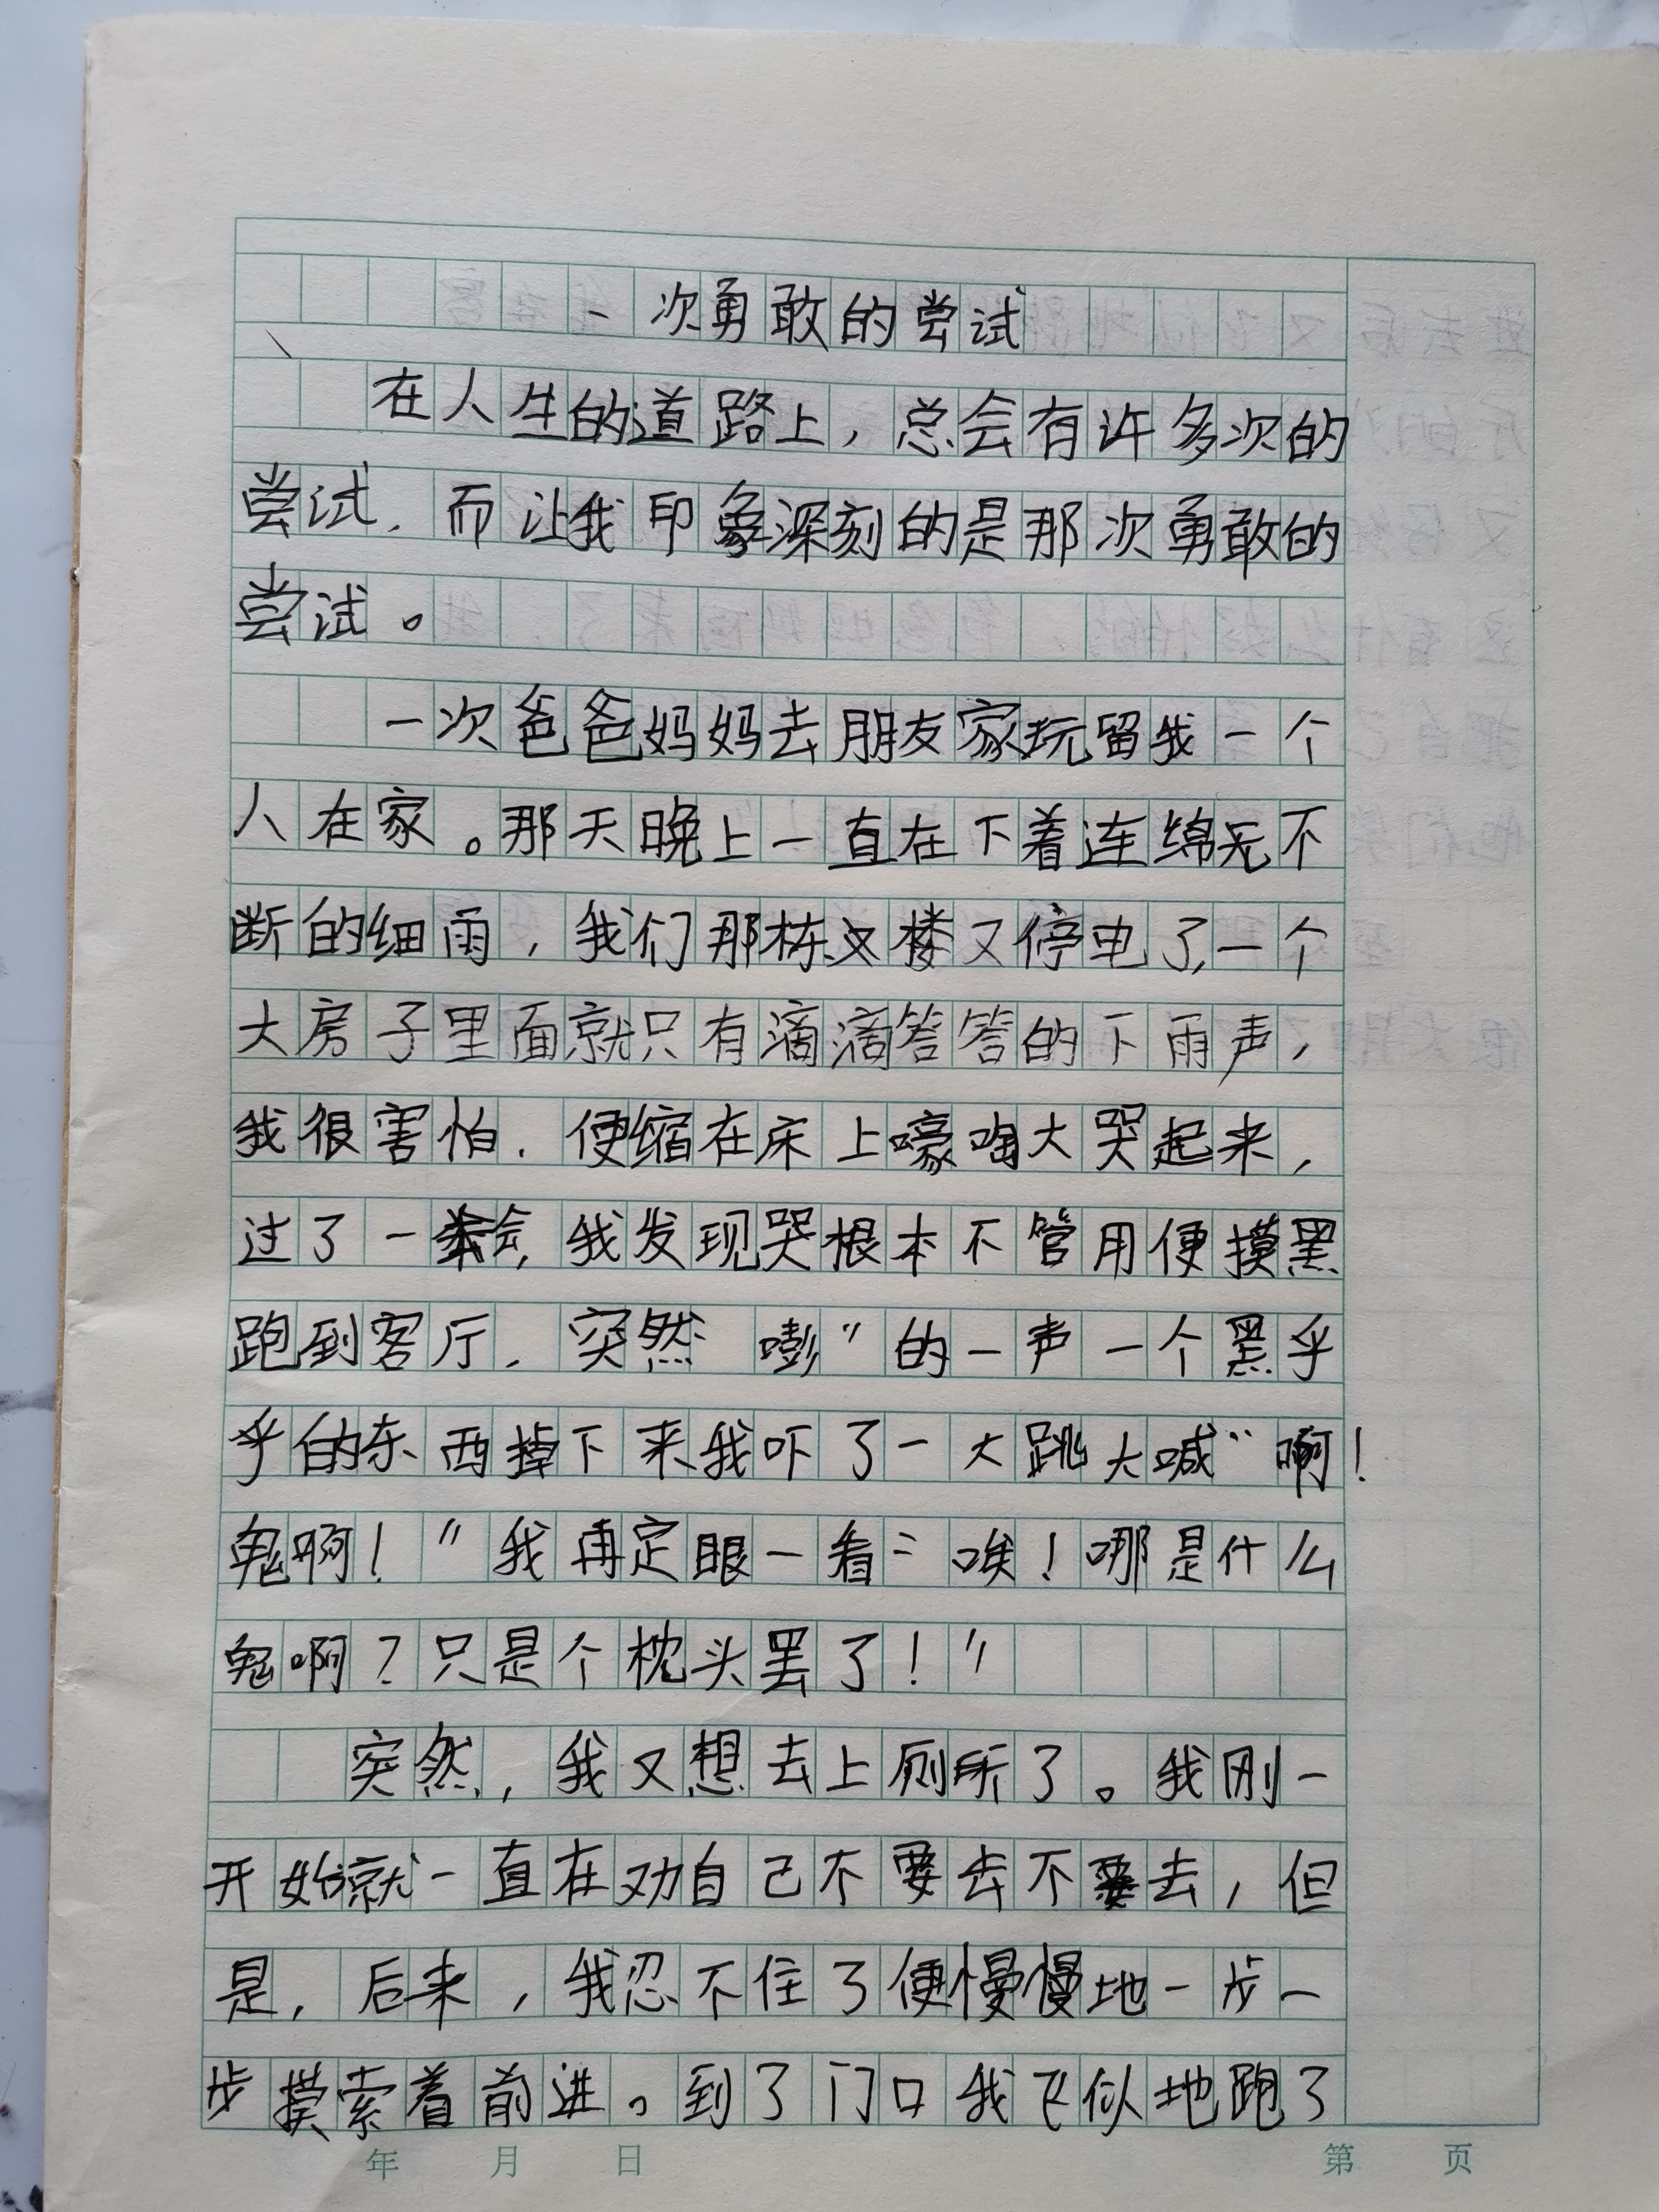 一次勇敢的尝试
在人生的道路上，总会有许多次的
尝试，而让我印象深刻的是那次勇敢的
尝试。
一次爸爸妈妈去朋友家玩留我一个
人在家。那天晚上一直在下着连绵无不
断的细雨，我们那栋楼又停电了，一个
大房子里面就只有滴滴答答的下雨声，
我很害怕，便缩在床上嚎啕大哭起来，
过了一会，我发现哭根本不管用便摸黑
跑到客厅，突然 嘭”的一声一个黑乎
乎的东西掉下来我吓了一大跳大喊“啊！
鬼啊！”我再定眼一看：唉！哪是什么
鬼啊？只是个枕头罢了！”
突然，我又想去上厕所了。我刚一
开始就一直在劝自己不要去不要去，但
是，后来，我忍不住了便慢慢地一步一
步摸索着前进。到了门口我飞似地跑了
年 月 日 第 页